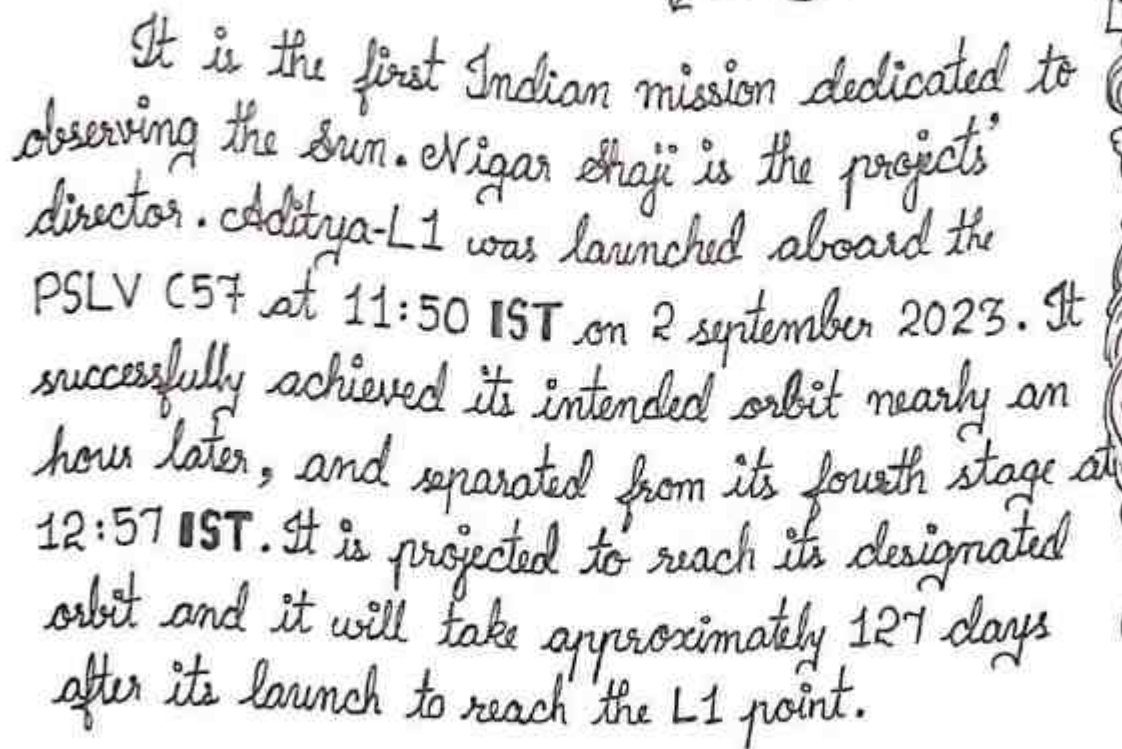 It is the first Indian mission dedicated to
observing the Sun. Nigar Shaji is the projects'
director. Aditya-L1 was launched aboard the
PSLV C57 at 11:50 IST on 2 september 2023. It
successfully achieved its intended orbit nearly an
hour later, and separated from its fourth stage at
12:57 IST. It is projected to reach its designated
orbit and it will take approximately 127 days
after its launch to reach the L1 point.